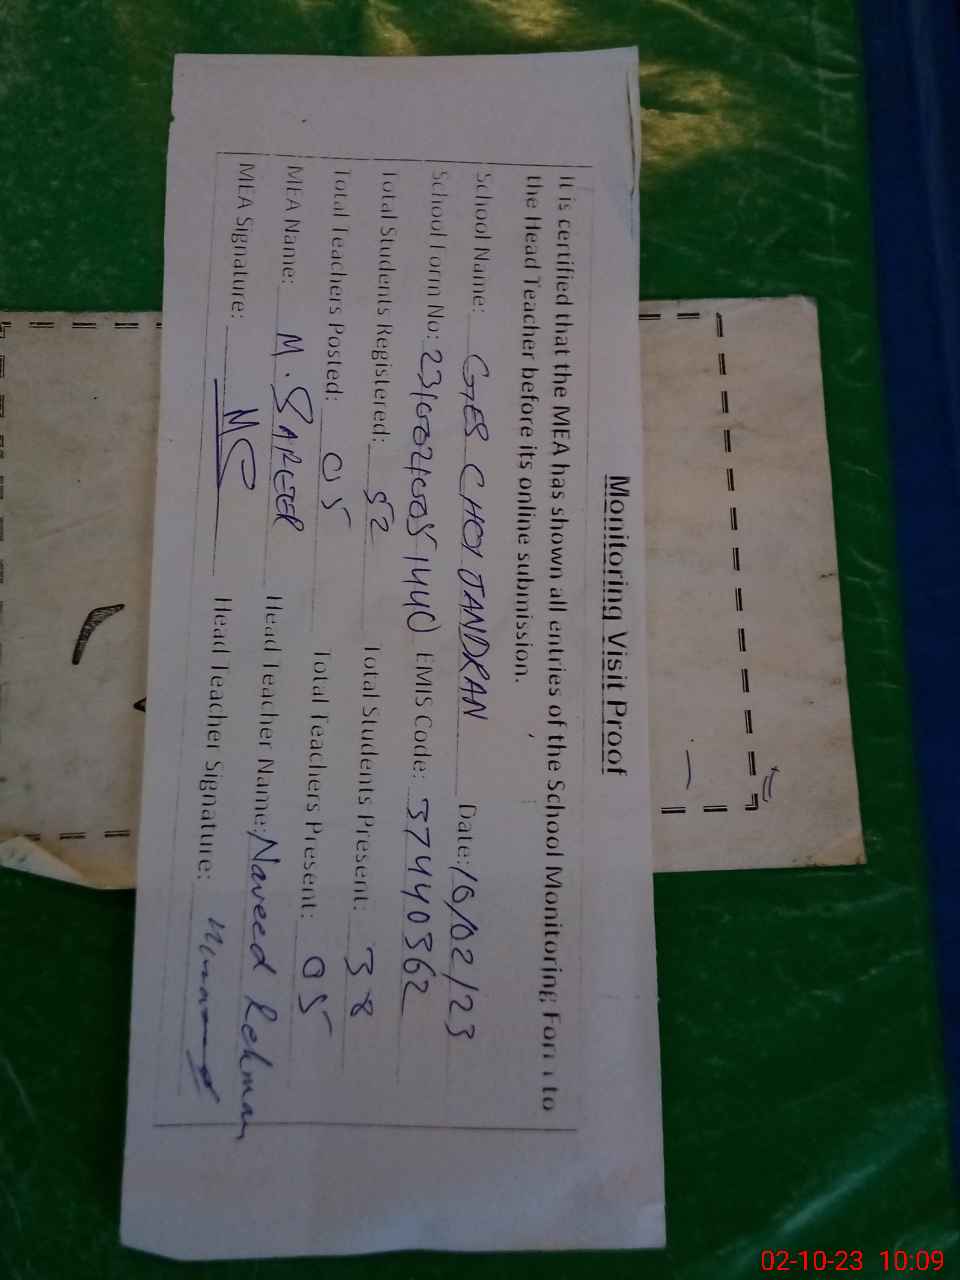 Monitoring Visit Proof
It is certified that the MEA has shown all entries of the School Monitoring Form to
the Head Teacher before its online submission.
School Name: GES CHOI JANDRAN Date: 10/02/23
School Form No: EMIS Code: 37440362
Total Students Registered: 52 Total Students Present: 38
Total Teachers Posted: 05 Total Teachers Present: 05
MEA Name: M. Head Teacher Name: Naveed Rehman
MEA Signature: Head Teacher Signature:
02-10-23 10:09